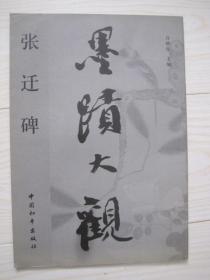 墨蹟大觀
张迁碑
中国和平出版社